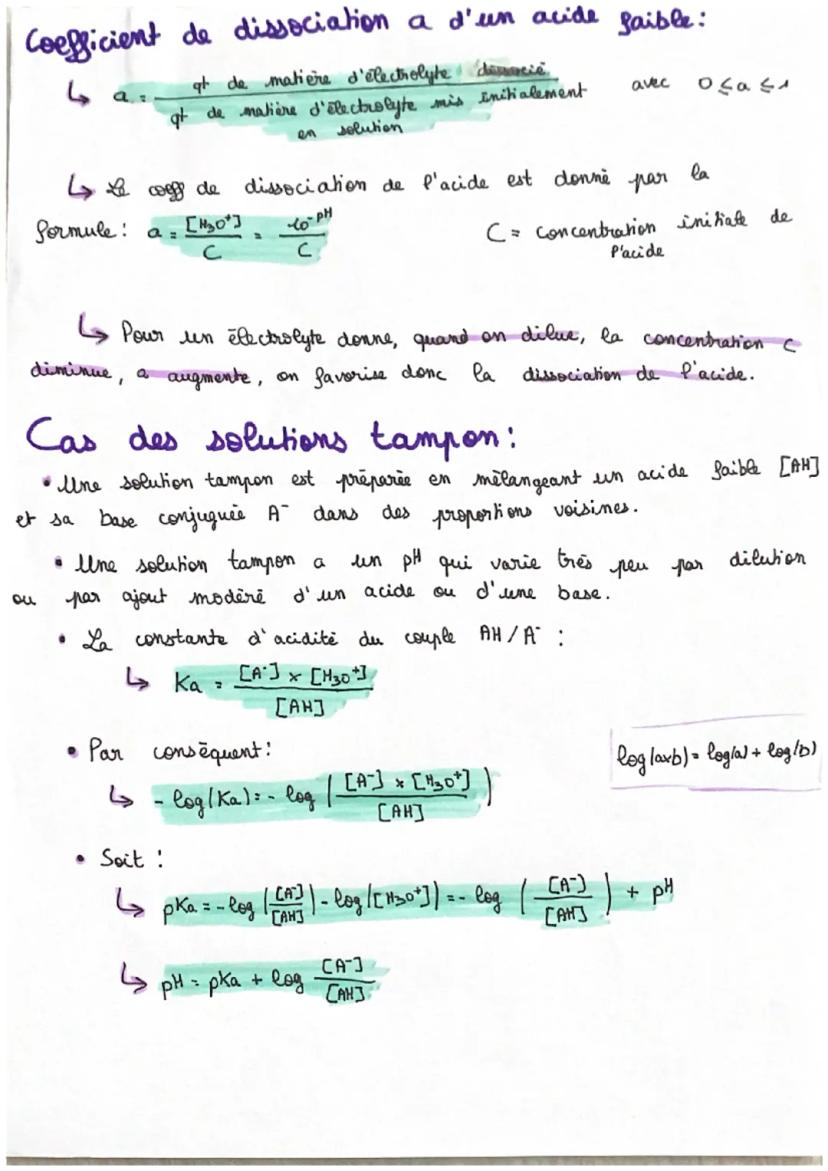 Coefficient de dissociation a d'un acide faible :
↳ a = qt de matière d'électrolyte dissocié / qt de matière d'électrolyte mis initialement en solution avec 0 ≤ a ≤ 1
↳ Le coeff de dissociation de l'acide est donné par la
formule : a = [H3O+] / C = 10^-pH / C C = concentration initiale de
l'acide
↳ Pour un électrolyte donne, quand on dilue, la concentration C
diminue, a augmente, on favorise donc la dissociation de l'acide.
Cas des solutions tampon :
• Une solution tampon est préparée en mélangeant un acide faible [AH]
et sa base conjuguée A- dans des proportions voisines.
• Une solution tampon a un pH qui varie très peu par dilution
ou par ajout modéré d'un acide ou d'une base.
• La constante d'acidité du couple AH/A- :
↳ Ka = [A-] x [H3O+] / [AH]
• Par conséquent :
log(axb) = log(a) + log(b)
↳ - log(Ka) = - log ( [A-] x [H3O+] / [AH] )
• Soit :
↳ pKa = - log ( [A-] / [AH] ) - log([H3O+]) = - log ( [A-] / [AH] ) + pH
↳ pH = pKa + log [A-] / [AH]